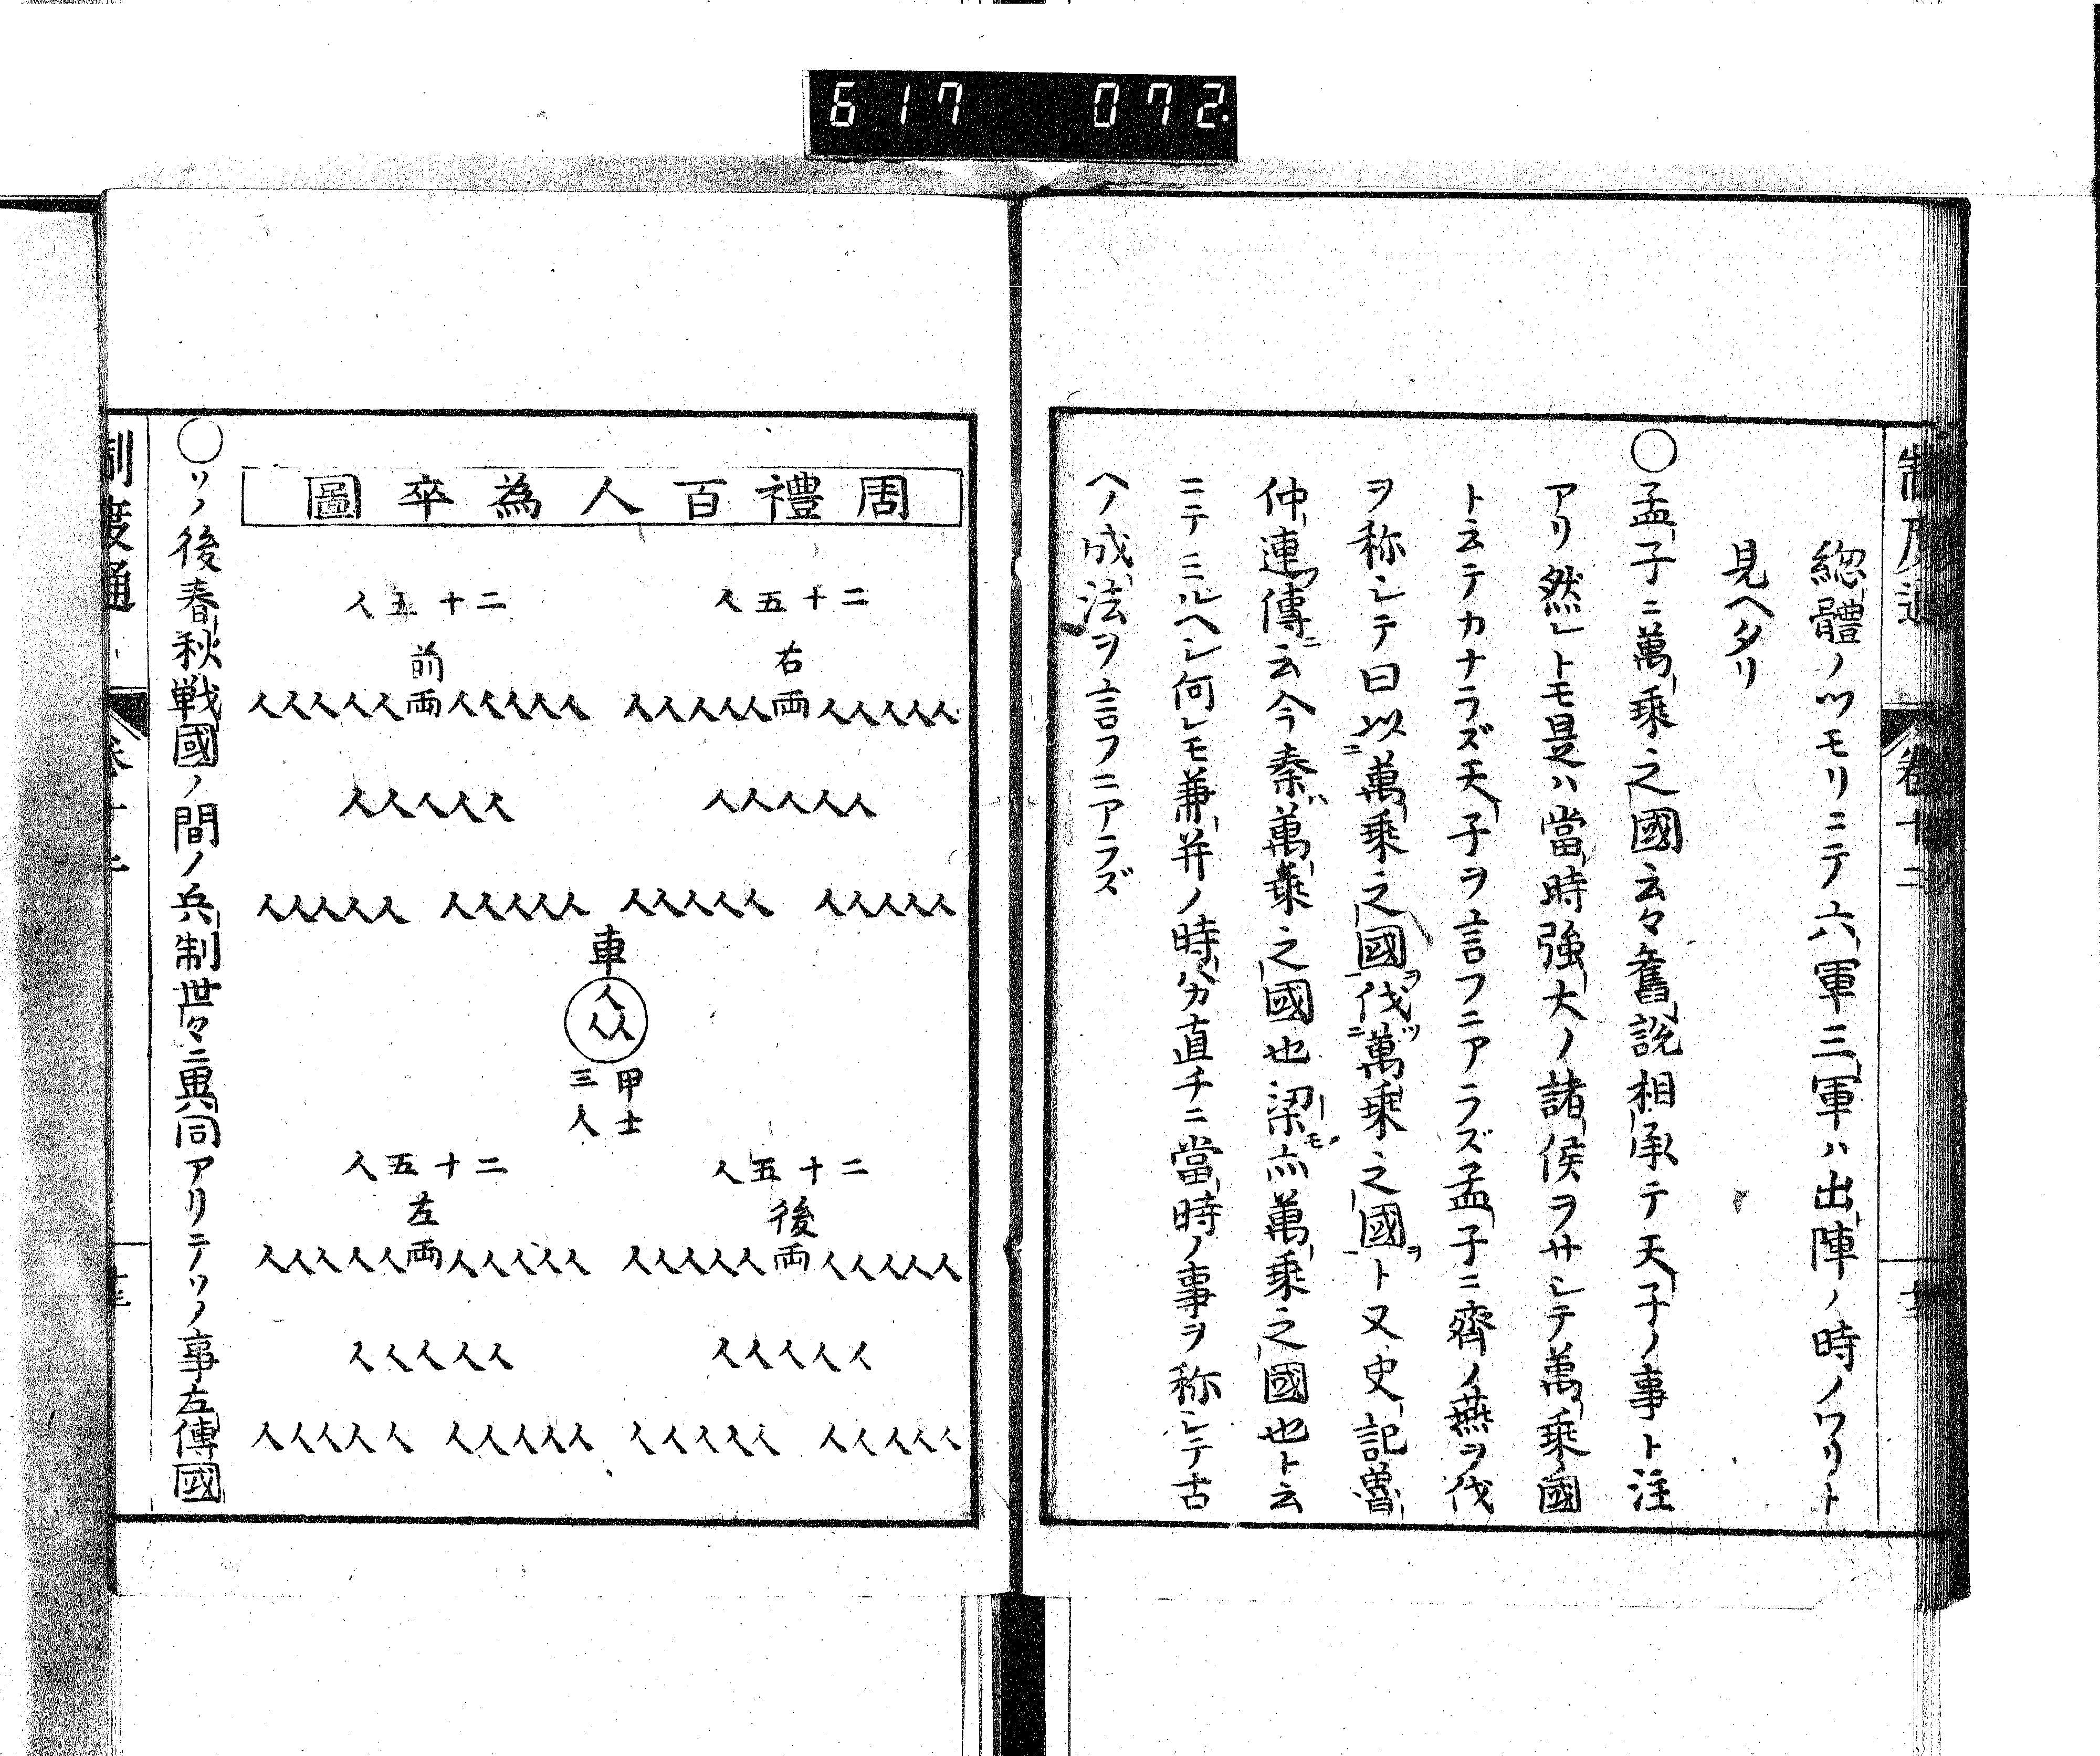 617 072.
制度通 卷十二
總體ノツモリニテ六軍三軍ハ出陣ノ時ノワリト
見ヘタリ
○孟子ニ萬乘之國云々舊説相承テ天子ノ事ト注
アリ然レトモ是ハ當時強大ノ諸侯ヲサシテ萬乘國
ト云テカナラズ天子ヲ言フニアラズ孟子ニ齊ノ燕ヲ伐
ヲ称シテ曰以萬乘之國ヲ伐ツ萬乘之國ヲト又史記魯
仲連傳ニ云今秦ハ萬乘之國也梁モ亦萬乘之國也ト云
ニテミルヘシ何レモ兼并ノ時ハカ直チニ當時ノ事ヲ称シテ古
ヘノ成法ヲ言フニアラズ
周禮百人為卒圖
二十五人 二十五人
右 前
人人人人人両人人人人人 人人人人人両人人人人人
人人人人人 人人人人人
人人人人人 人人人人人 人人人人人 人人人人人
車
人
人人
甲士
三人
二十五人 二十五人
後 左
人人人人人両人人人人人 人人人人人両人人人人人
人人人人人 人人人人人
人人人人人 人人人人人 人人人人人 人人人人人
○ソノ後春秋戦國ノ間ノ兵制世々ニ異同アリテソノ事左傳國
制度通 卷十二